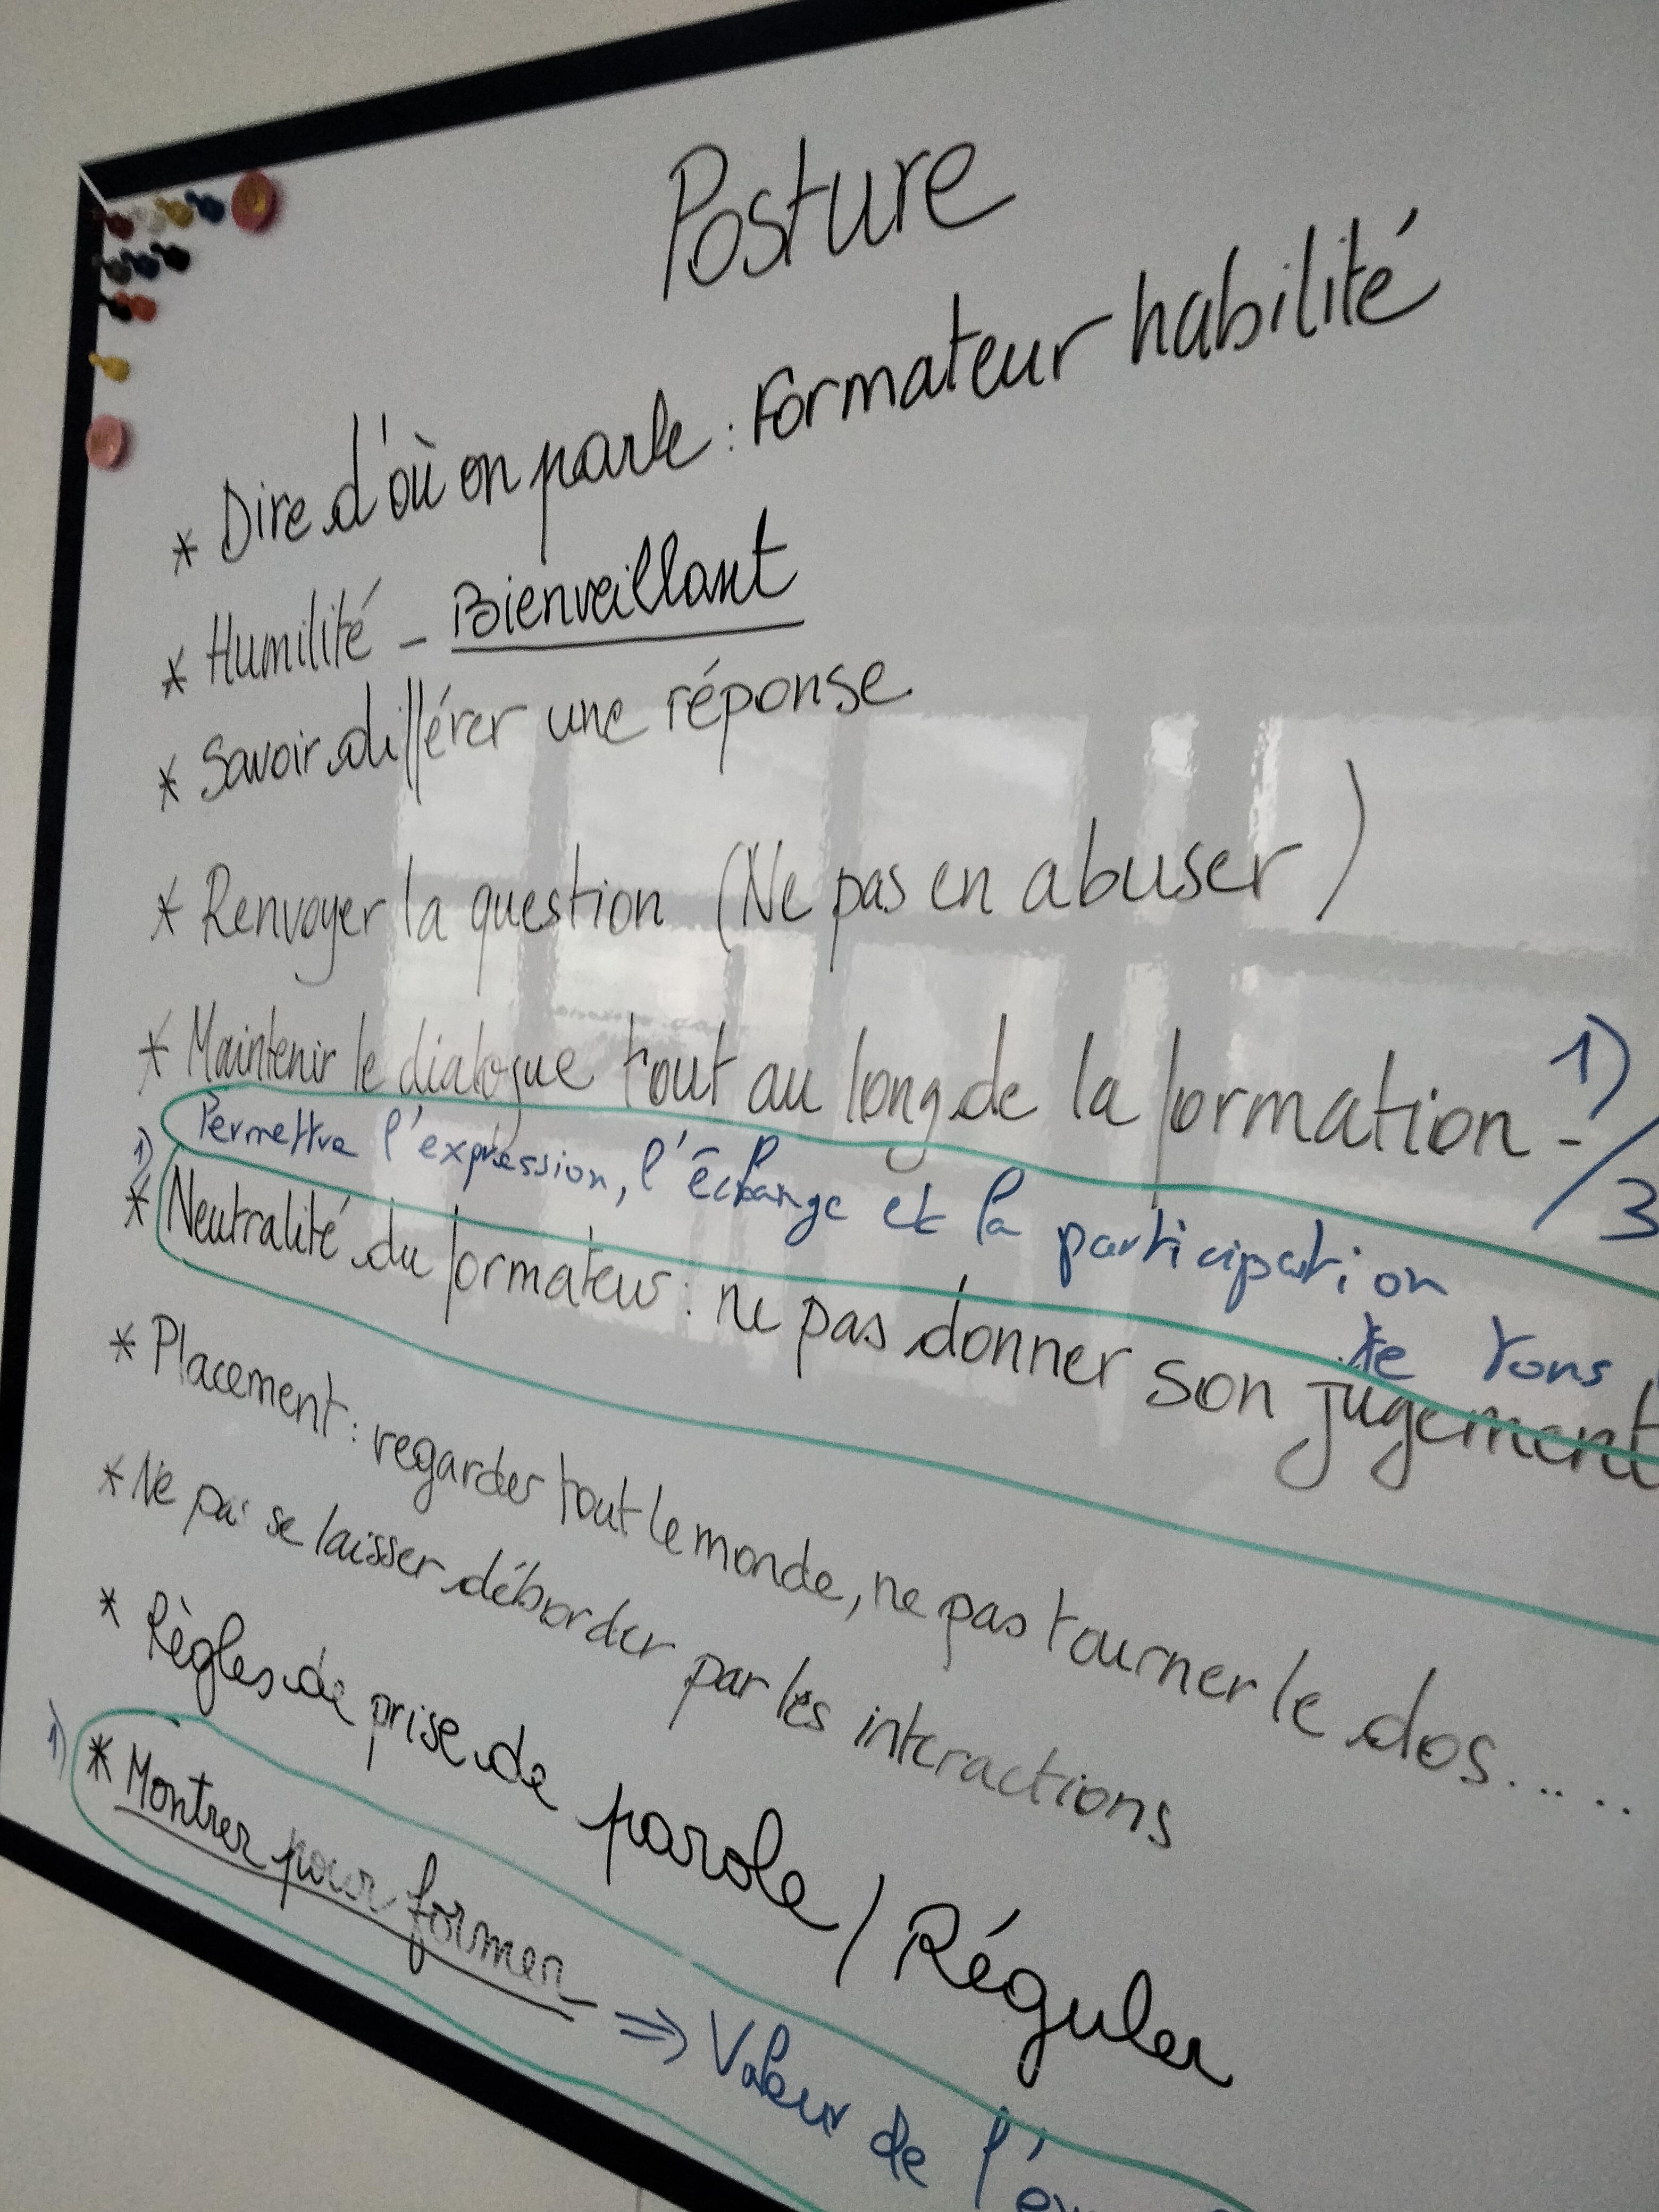 Posture
* Dire d'où on parle : Formateur habilité
* Humilité - Bienveillant
* Savoir différer une réponse
* Renvoyer la question (Ne pas en abuser)
* Maintenir le dialogue tout au long de la formation - 1)/3
1) Permettre l'expression, l'échange et la participation
de tous
* Neutralité du formateur : ne pas donner son jugement
* Placement : regarder tout le monde, ne pas tourner le dos.....
* Ne pas se laisser déborder par les interactions
* Règles de prise de parole / Réguler
1) * Montrer pour former => Valeur de